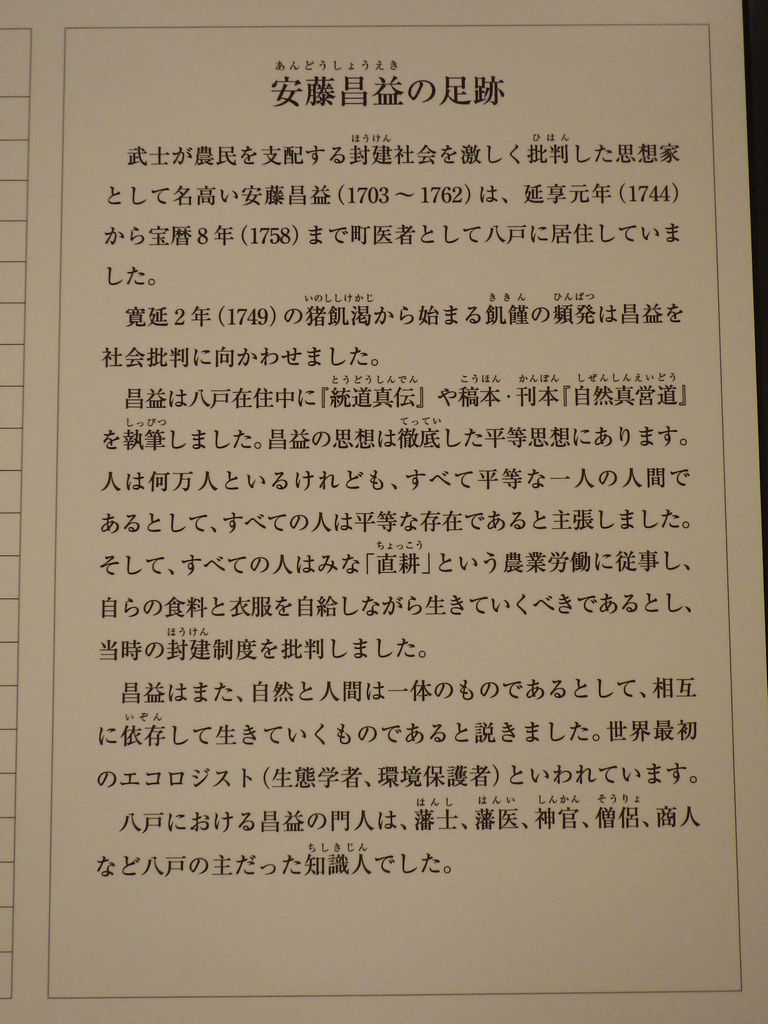 安藤昌益の足跡
武士が農民を支配する封建社会を激しく批判した思想家
として名高い安藤昌益(1703～1762)は、延享元年(1744)
から宝暦8年(1758)まで町医者として八戸に居住していま
した。
寛延2年(1749)の猪飢渇から始まる飢饉の頻発は昌益を
社会批判に向かわせました。
昌益は八戸在住中に『統道真伝』や稿本・刊本『自然真営道』
を執筆しました。昌益の思想は徹底した平等思想にあります。
人は何万人といるけれども、すべて平等な一人の人間で
あるとして、すべての人は平等な存在であると主張しました。
そして、すべての人はみな「直耕」という農業労働に従事し、
自らの食料と衣服を自給しながら生きていくべきであるとし、
当時の封建制度を批判しました。
昌益はまた、自然と人間は一体のものであるとして、相互
に依存して生きていくものであると説きました。世界最初
のエコロジスト(生態学者、環境保護者)といわれています。
八戸における昌益の門人は、藩士、藩医、神官、僧侶、商人
など八戸の主だった知識人でした。